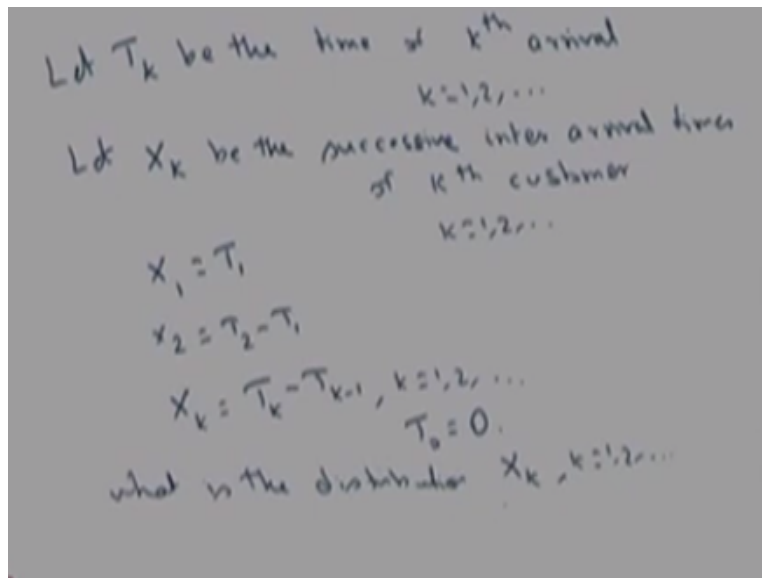 Let T_k be the time of k^th arrival
k=1,2,...
Let X_k be the successive inter arrival times
of k^th customer
k=1,2,...
X_1 = T_1
X_2 = T_2 - T_1
X_k = T_k - T_{k-1}, k=1,2,...
T_0 = 0.
what is the distribution X_k, k=1,2,...